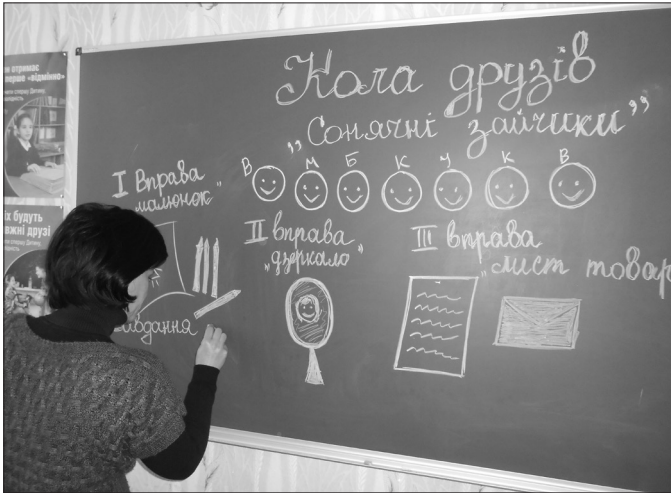 Кола друзів
„Сонячні зайчики”
В М Б К У К В
I Вправа
малюнок”
II вправа
„дзеркало”
III вправа
„лист товар
Завдання
ен отримає
перше «відмінно»
іх будуть
авжні друзі